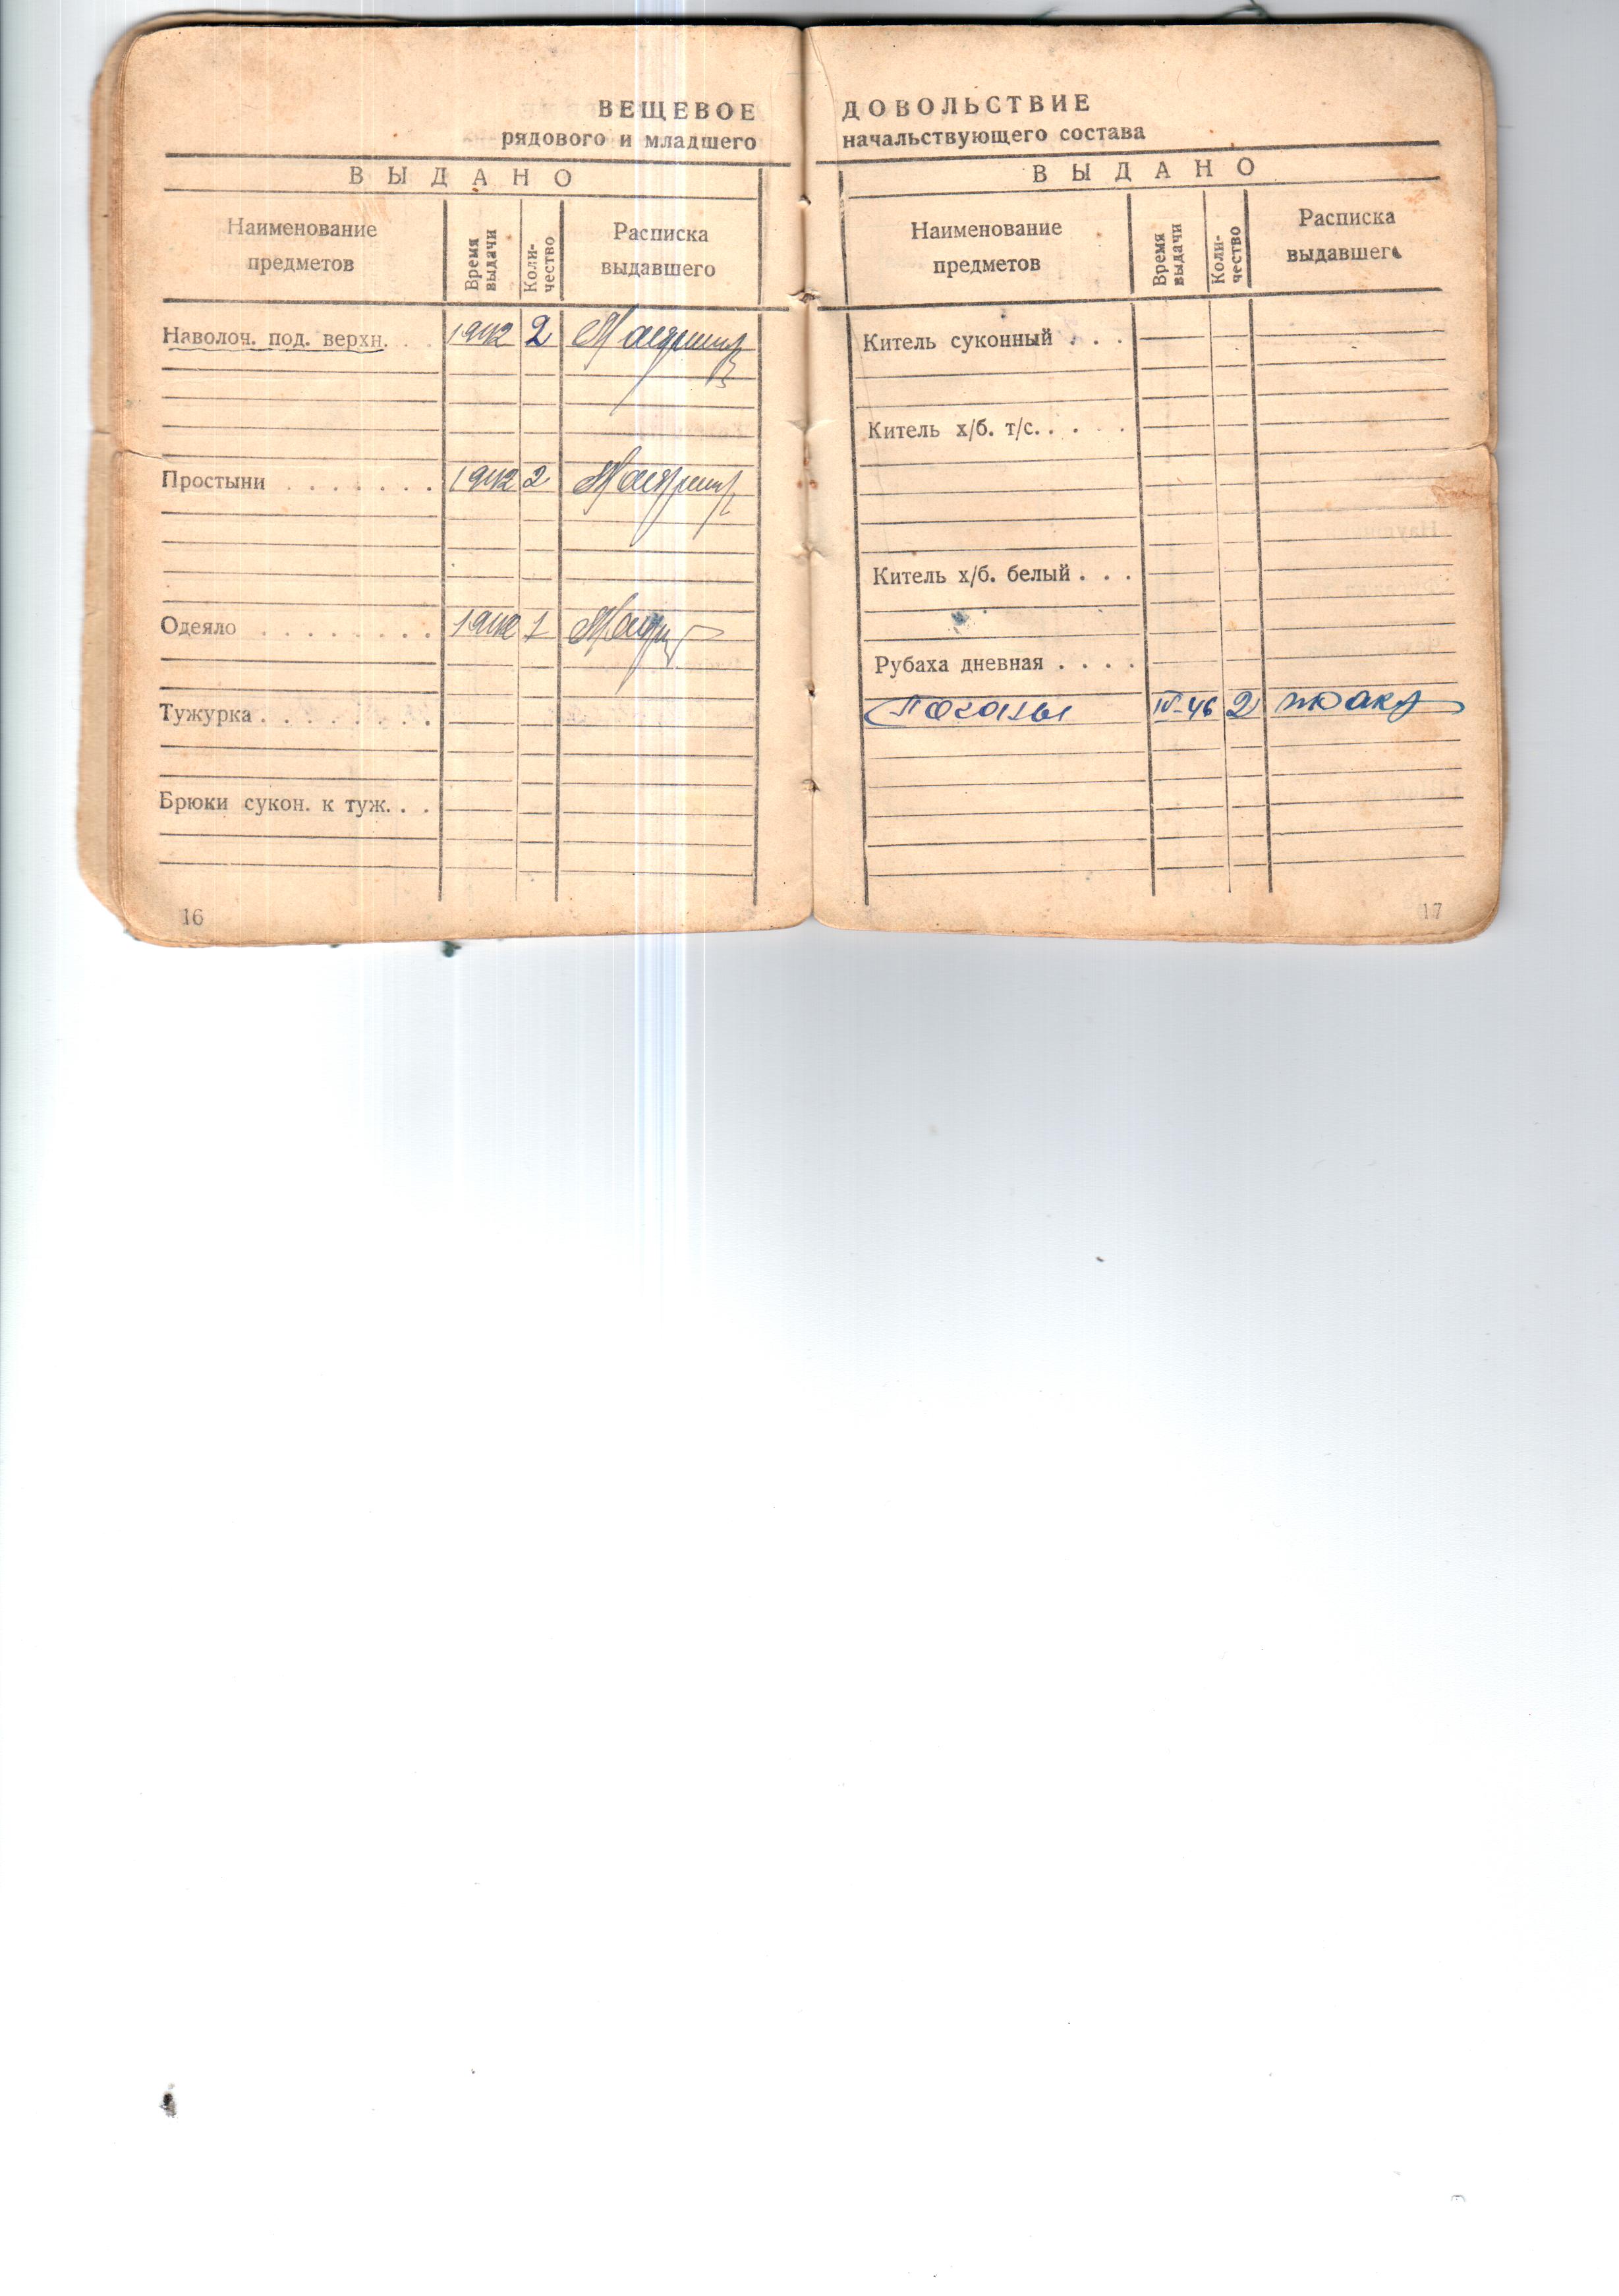 ВЕЩЕВОЕ
рядового и младшего
ВЫДАНО
Наименование
предметов
Время
выдачи
Коли-
чество
Расписка
выдавшего
Наволоч. под. верхн. . . 1942 2
Простыни . . . . . . . 1942 2
Одеяло . . . . . . . . 1942 1
Тужурка . . . . . . . .
Брюки сукон. к туж. . .
16
ДОВОЛЬСТВИЕ
начальствующего состава
ВЫДАНО
Наименование
предметов
Время
выдачи
Коли-
чество
Расписка
выдавшего
Китель суконный . . .
Китель х/б. т/с. . . . .
Китель х/б. белый . . .
Рубаха дневная . . . .
Погоны IV-46 2
17